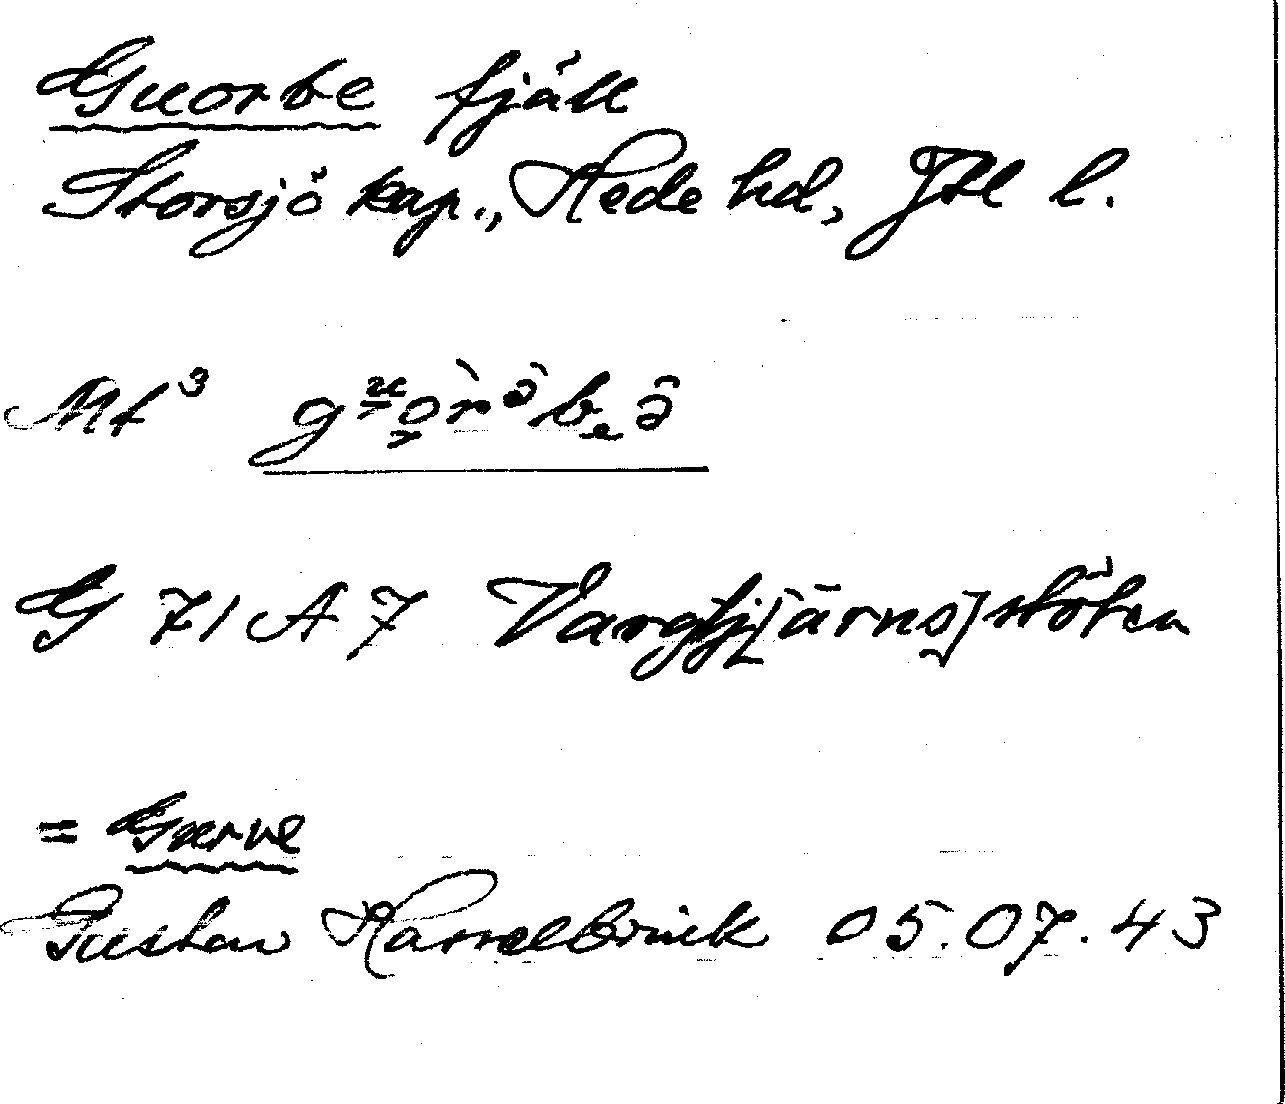 Guorbe fjäll
Storsjö kap., Hede hd, Jtl l.
Mt³
G 71 A 7 Vargtj[ärns]stöten
= Gurve
Gustav Hasselbrink 05.07.43